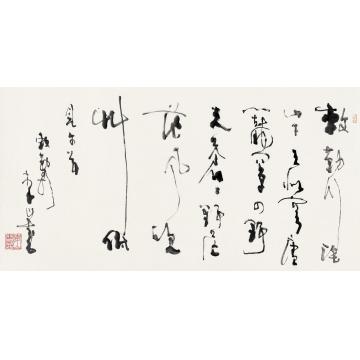 敕勒川陰
山下天似穹廬
籠蓋四野
天蒼々野茫
茫風吹
草低
見牛羊
敕勒歌